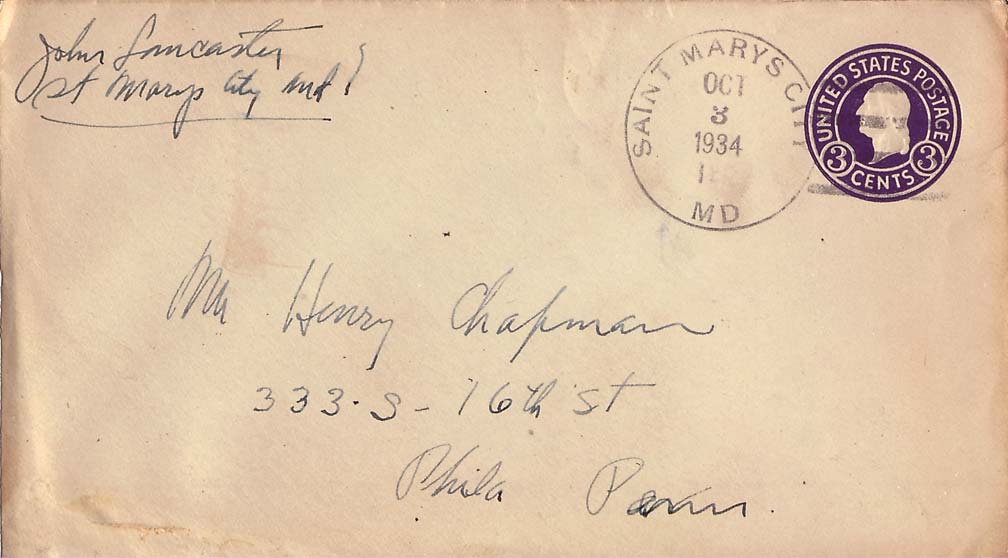 John Lancaster
St Marys City Md
SAINT MARYS CITY
OCT
3
1934
MD
UNITED STATES POSTAGE
3 CENTS 3
Mr Henry Chapman
333 · S - 16th ST
Phila Penn.